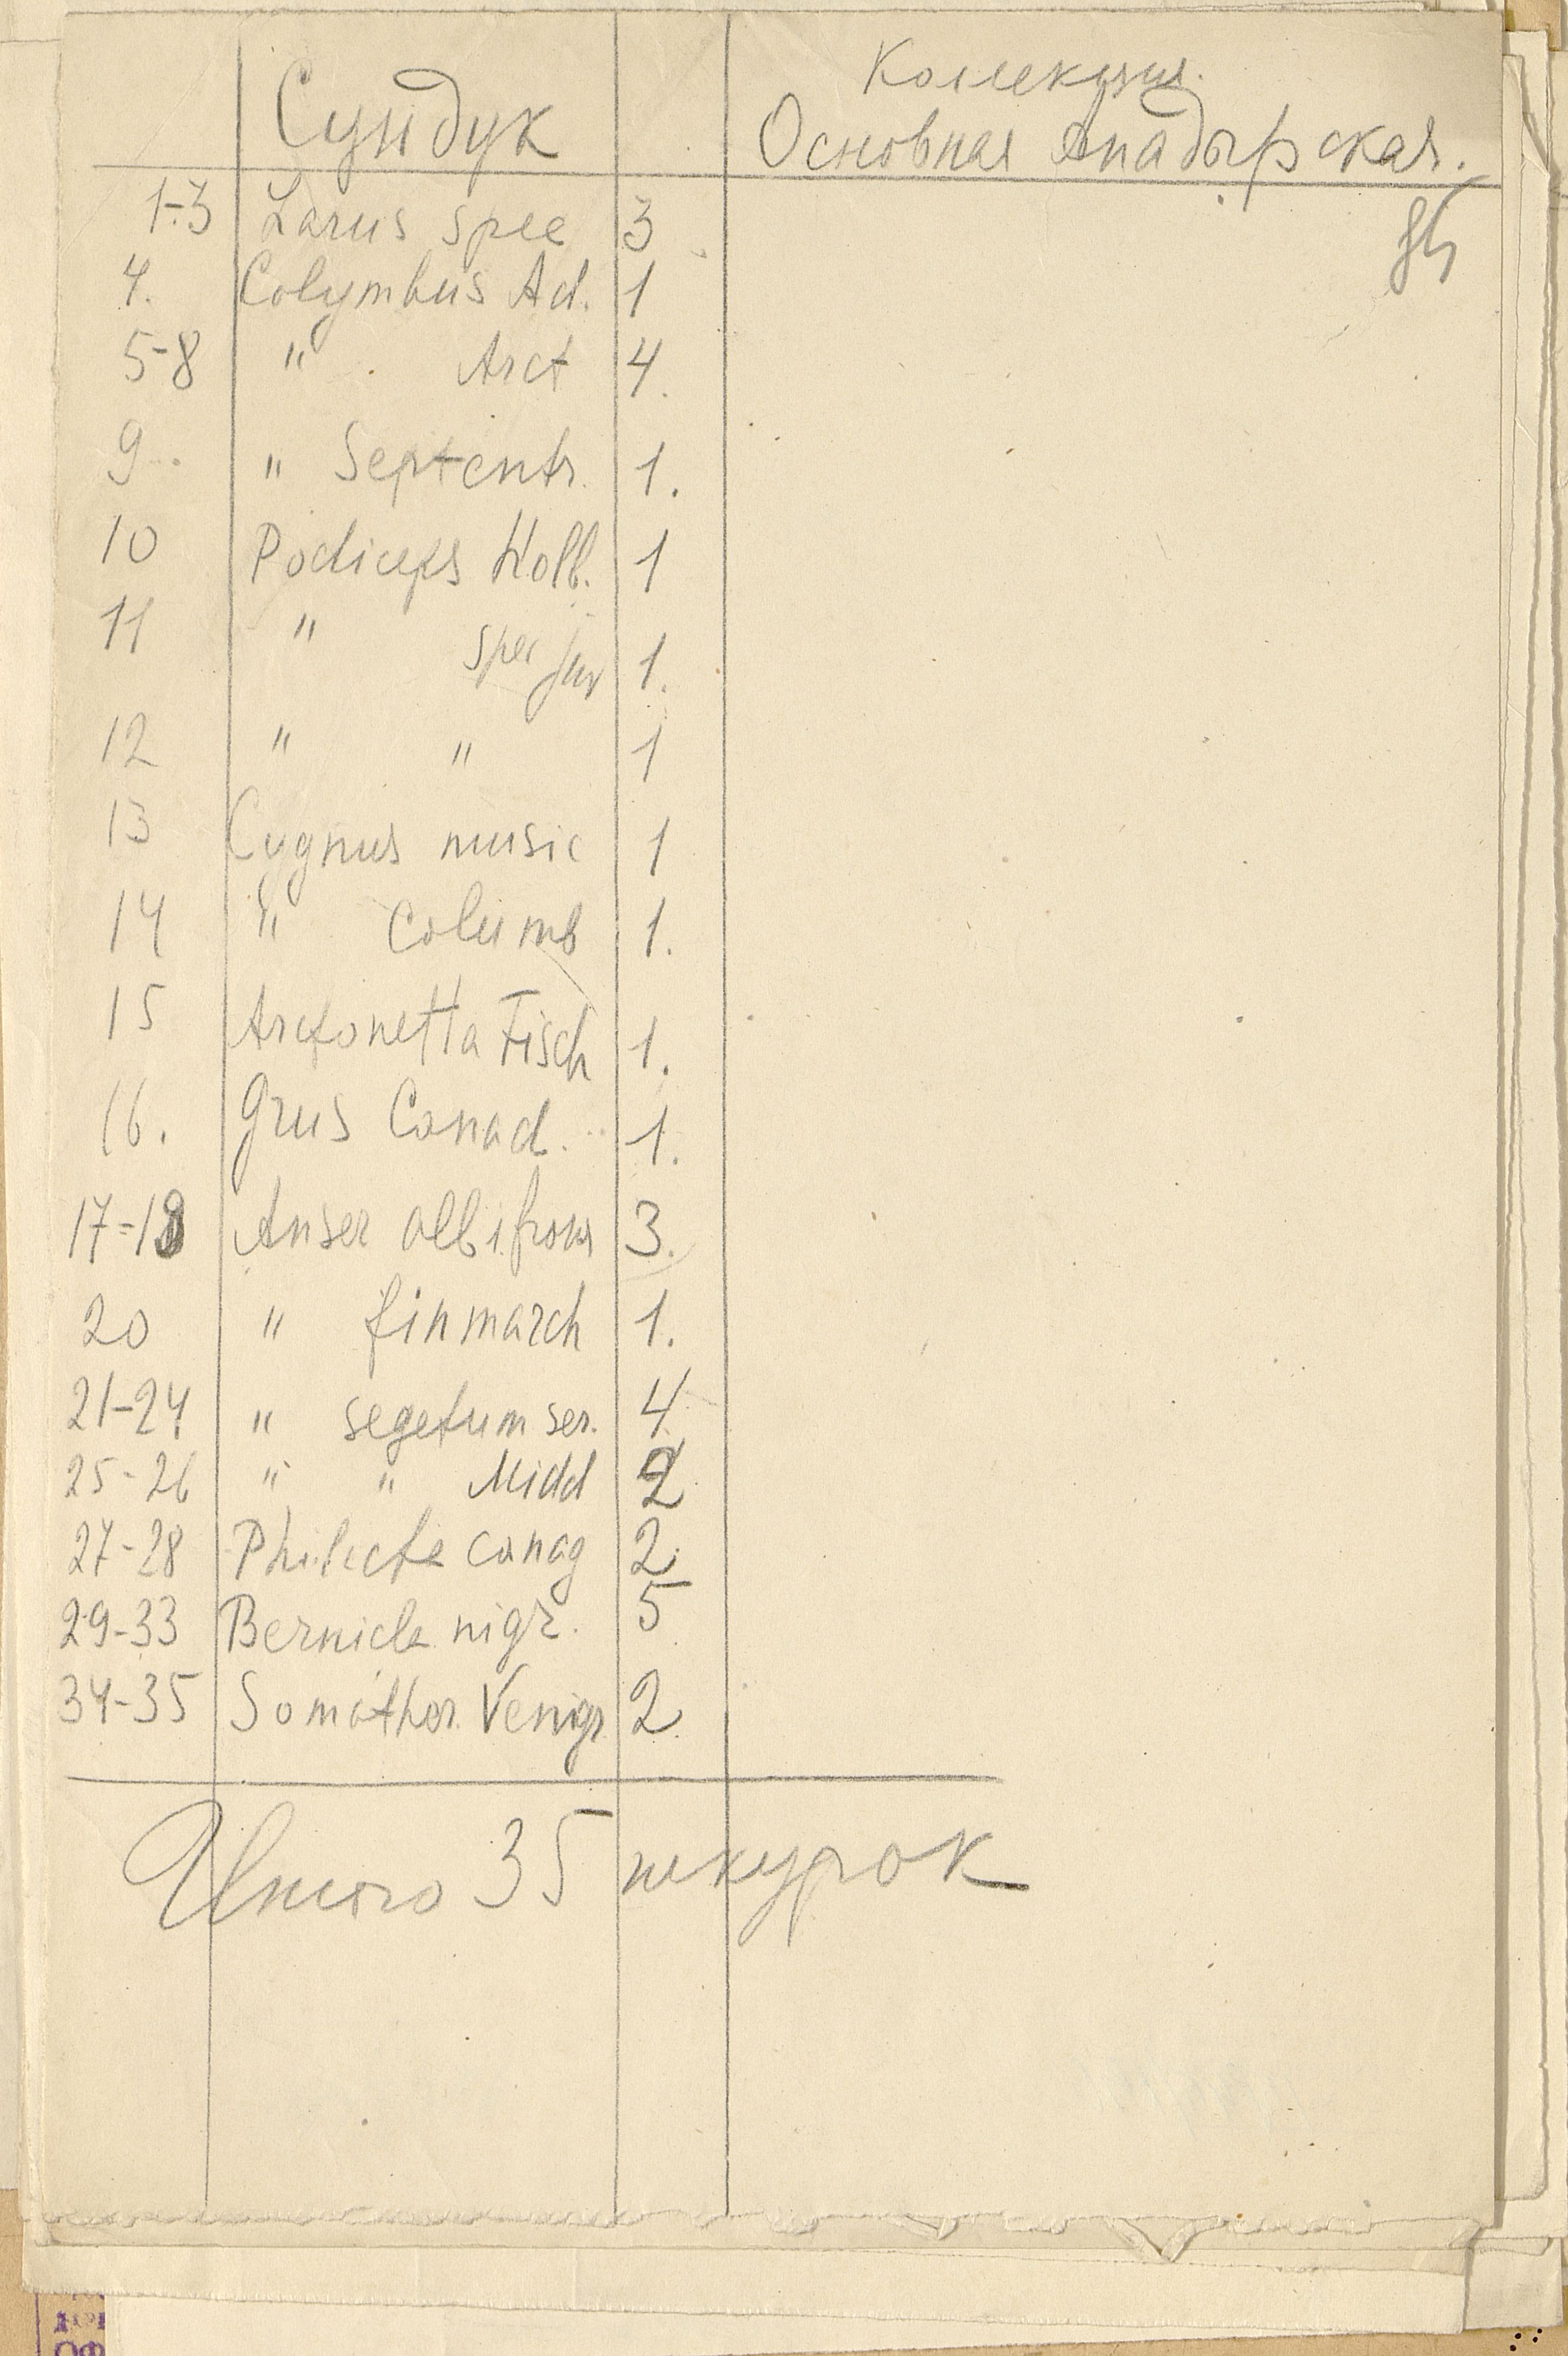 Коллекция.
Сундук Основная Анадырская.
1-3 Larus spec 3
4. Colymbus Ad. 1
5-8 " Arct 4.
9. " Septentr. 1.
10 Podiceps Holb. 1
11 " spec juv 1.
12 " " 1
13 Cygnus music 1
14 " Columb 1.
15 Arctonetta Fisch 1.
16. Grus Canad. 1.
17-19 Anser albifrons 3.
20 " finmarch 1.
21-24 " segetum ser. 4.
25-26 " " Midd 2
27-28 Philacte canag 2.
29-33 Bernicla nigr. 5
34-35 Somather. Venigr. 2.
Итого 35 шкурок